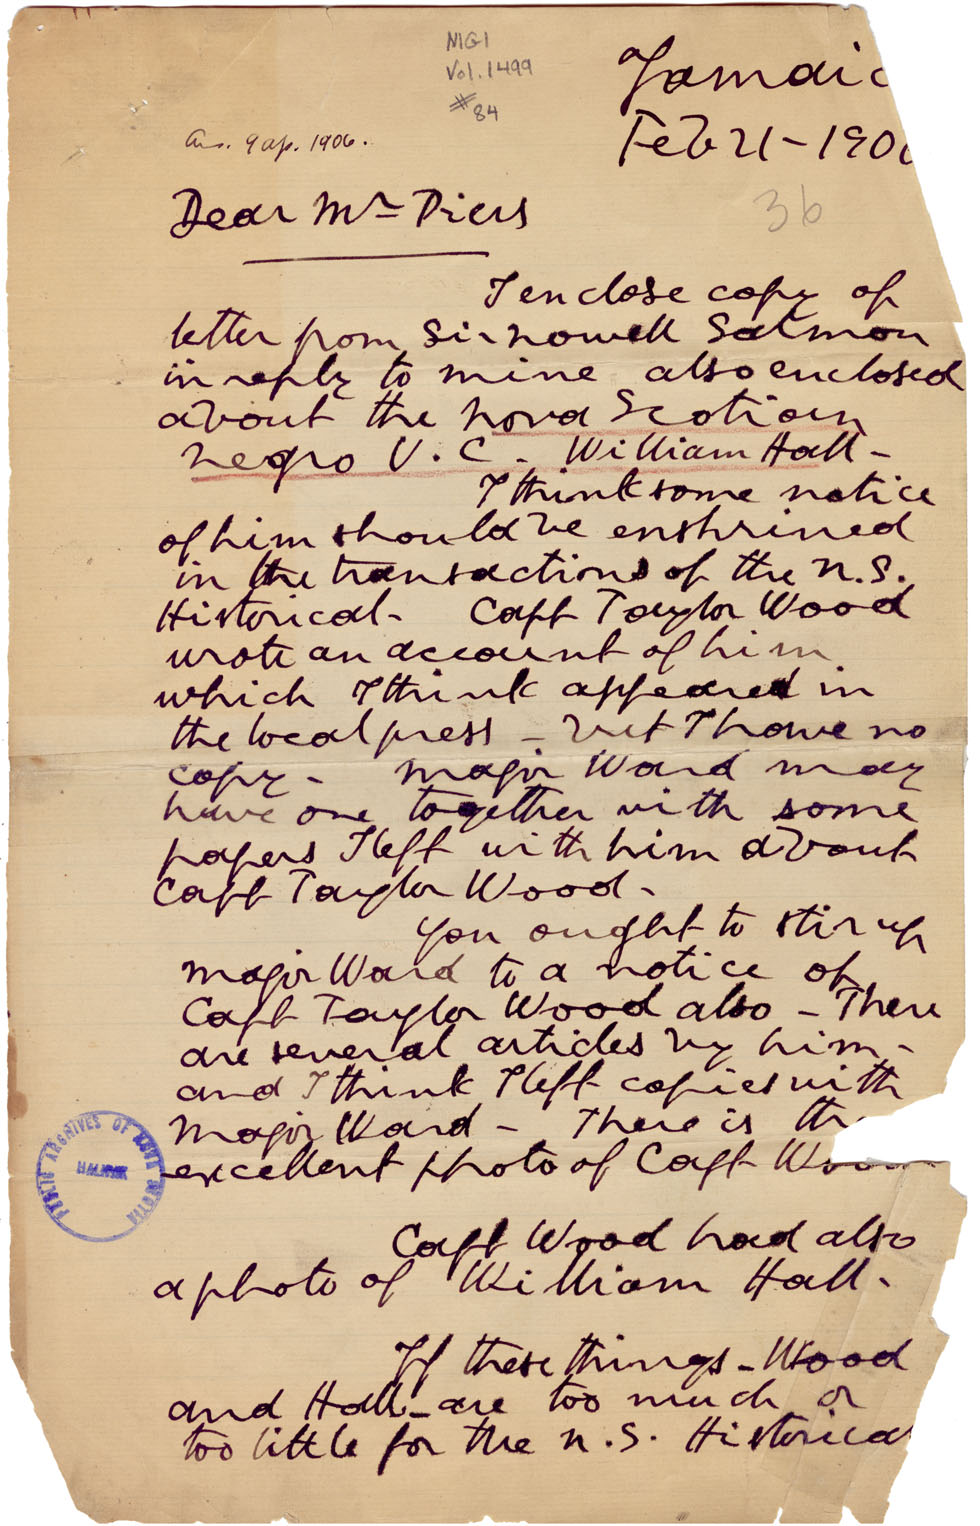 MG1
Vol. 1499
#84
Jamaic
Feb 21 - 190
Ans. 9 ap. 1906.
36
Dear Mr Piers
I enclose copy of
letter from Sir Nowell Salmon
in reply to mine also enclosed
about the Nova Scotian
negro V.C. William Hall -
I think some notice
of him should be enshrined
in the transactions of the N.S.
Historical - Capt Taylor Wood
wrote an account of him
which I think appeared in
the local press - but I have no
copy - Major Ward may
have one together with some
papers I left with him about
Capt Taylor Wood -
You ought to stir up
Major Ward to a notice of
Capt Taylor Wood also - There
are several articles by him -
and I think I left copies with
Major Ward - There is th
excellent photo of Capt Wood
Capt Wood had also
a photo of William Hall -
If these things - Wood
and Hall - are too much or
too little for the N.S. Historical
PUBLIC ARCHIVES OF NOVA SCOTIA
HALIFAX